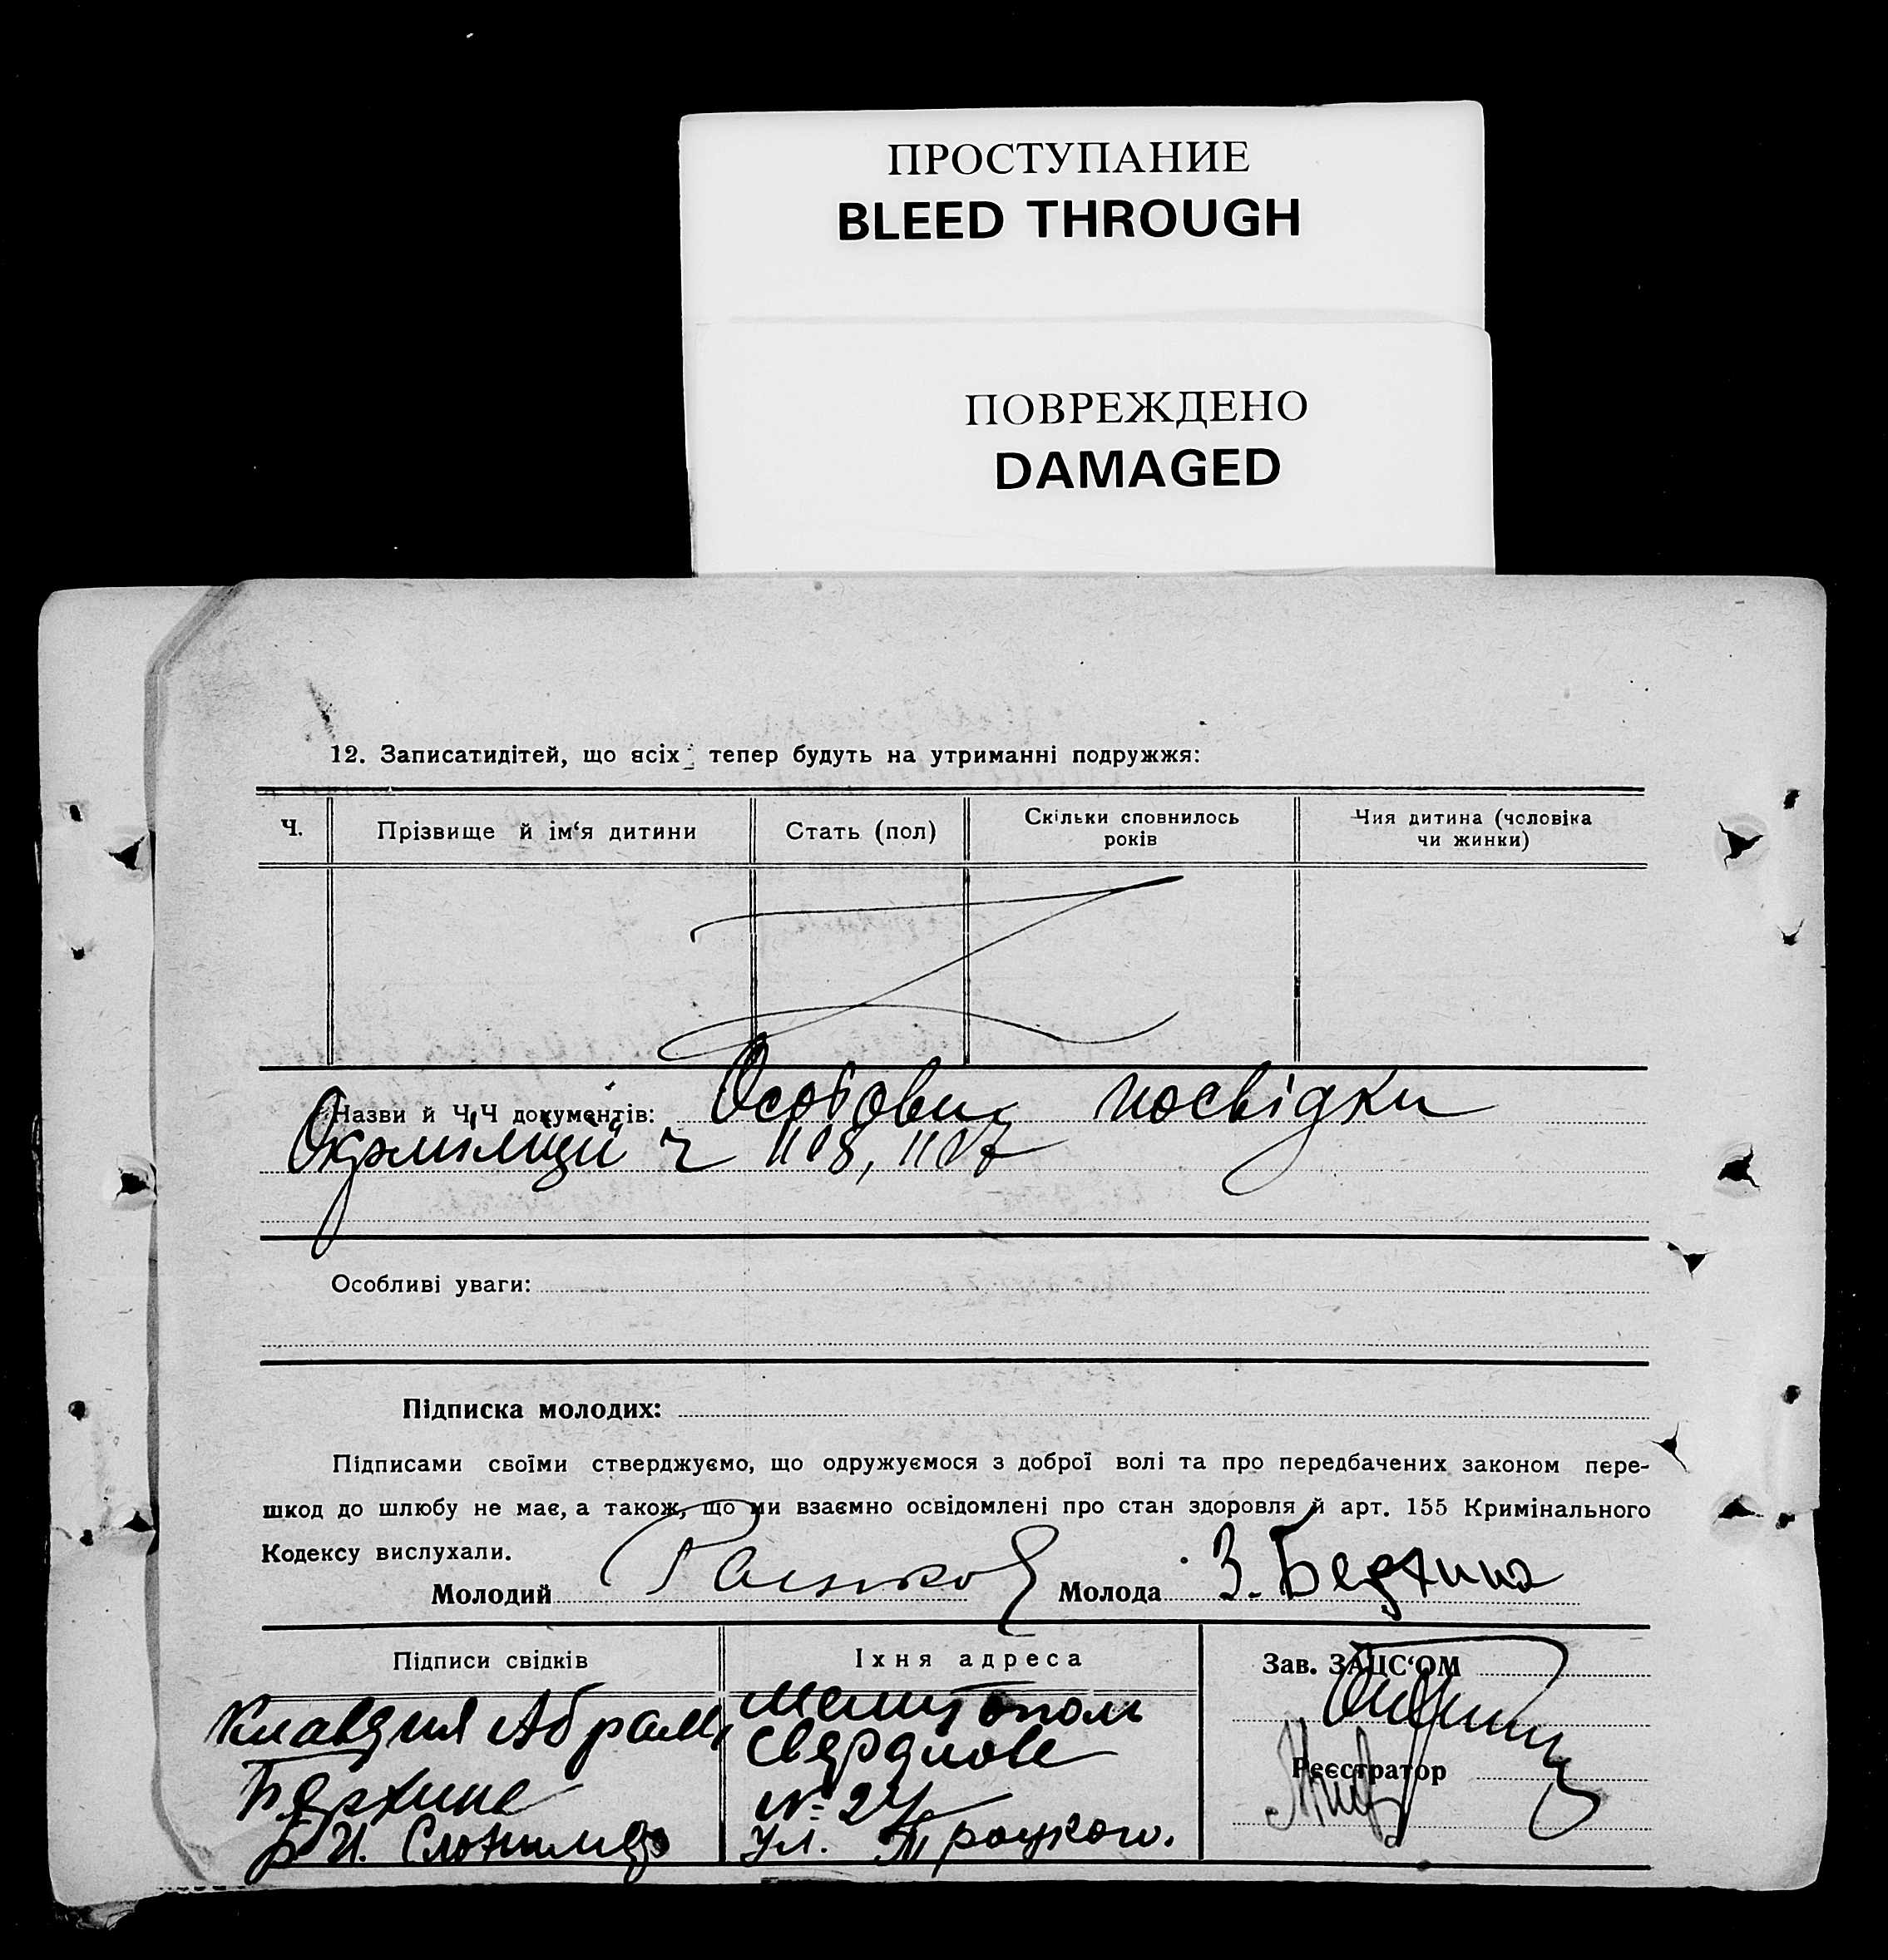 ПРОСТУПАНИЕ
BLEED THROUGH
ПОВРЕЖДЕНО
DAMAGED
12. Записатидітей, що всіх тепер будуть на утриманні подружжя:
Ч.
Прізвище й ім‘я дитини
Стать (пол)
Скільки сповнилось
років
Чия дитина (чоловіка
чи жинки)
Назви й Ч.Ч документів: Особови посвідки
ч 1108, 1107
Особливі уваги:
Підписка молодих:
Підписами своїми стверджуємо, що одружуємося з доброї волі та про передбачених законом пере-
шкод до шлюбу не має, а також, що ми взаємно освідомлені про стан здоровля й арт. 155 Кримінального
Кодексу вислухали.
Молодий
Молода З. Берхина
Підписи свідків
Їхня адреса
Зав. ЗАЦС‘ОМ
Клавдия Абрам
Берхина
Мелитополь
Свердлова
№ 24
ул. Троцкого.
Реєстратор